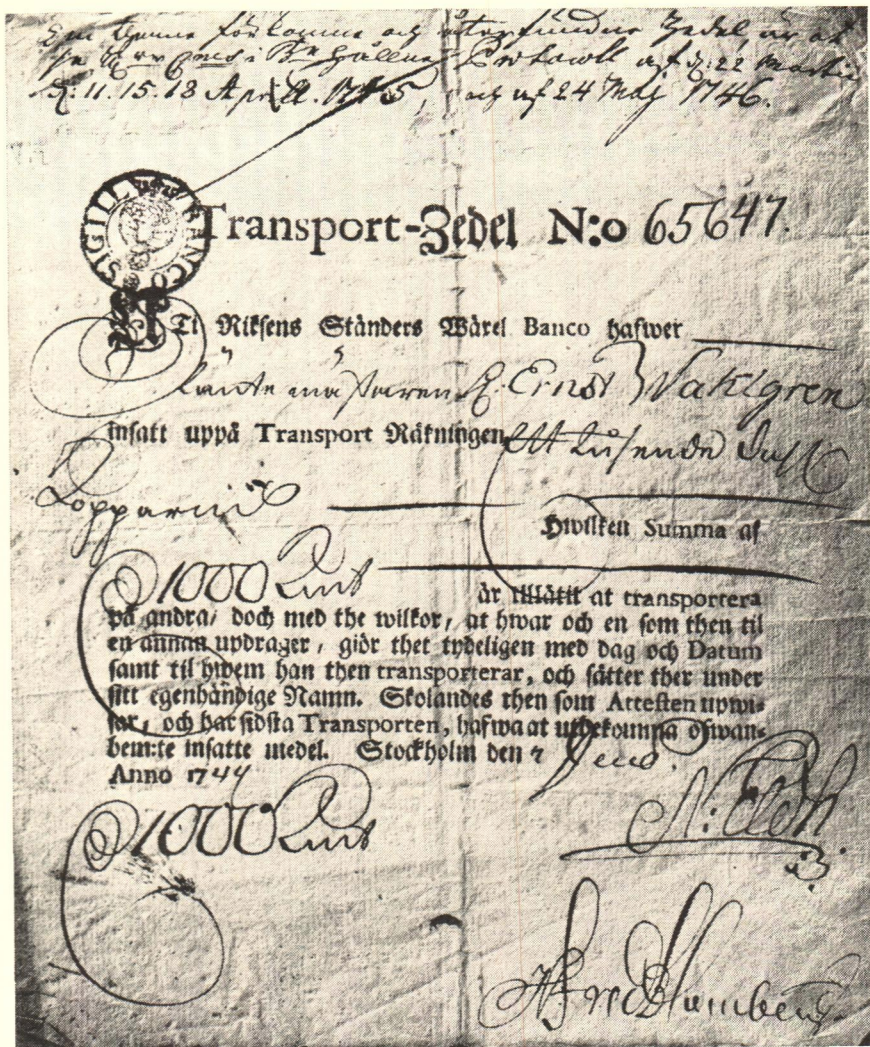 Om denne förkomne och återfundne Zedel, är at
se hållne Protocoll af d: 22 Martii
d: 11. 15. 18 April. 1745, och af 24 Maj 1746.
SIGILL BANCO
Transport-Zedel N:o 65647.
Uti Riksens Ständers Wäxel Banco hafwer
Ränte mästaren H. Ernst Vahlgren
insatt uppå Transport Räkningen Ett tusende
Kopparmt
Hwilken Summa af
D 1000 Kmt
är tillåtit at transportera
på andra, doch med the wilkor, at hwar och en som then til
en annan updrager, giör thet tydeligen med dag och Datum
samt til hwem han then transporterar, och sätter ther under
sitt egenhändige Namn. Skolandes then som Attesten upwi-
sar, och har sidsta Transporten, hafwa at utbekomma ofwan-
bem:te insatte medel. Stockholm den 7
Anno 1744
D 1000 Kmt